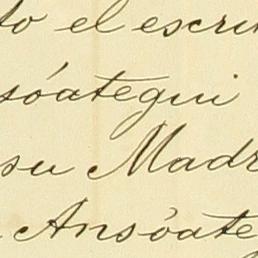 to el escri
sóategui
su Madr
Ansóate